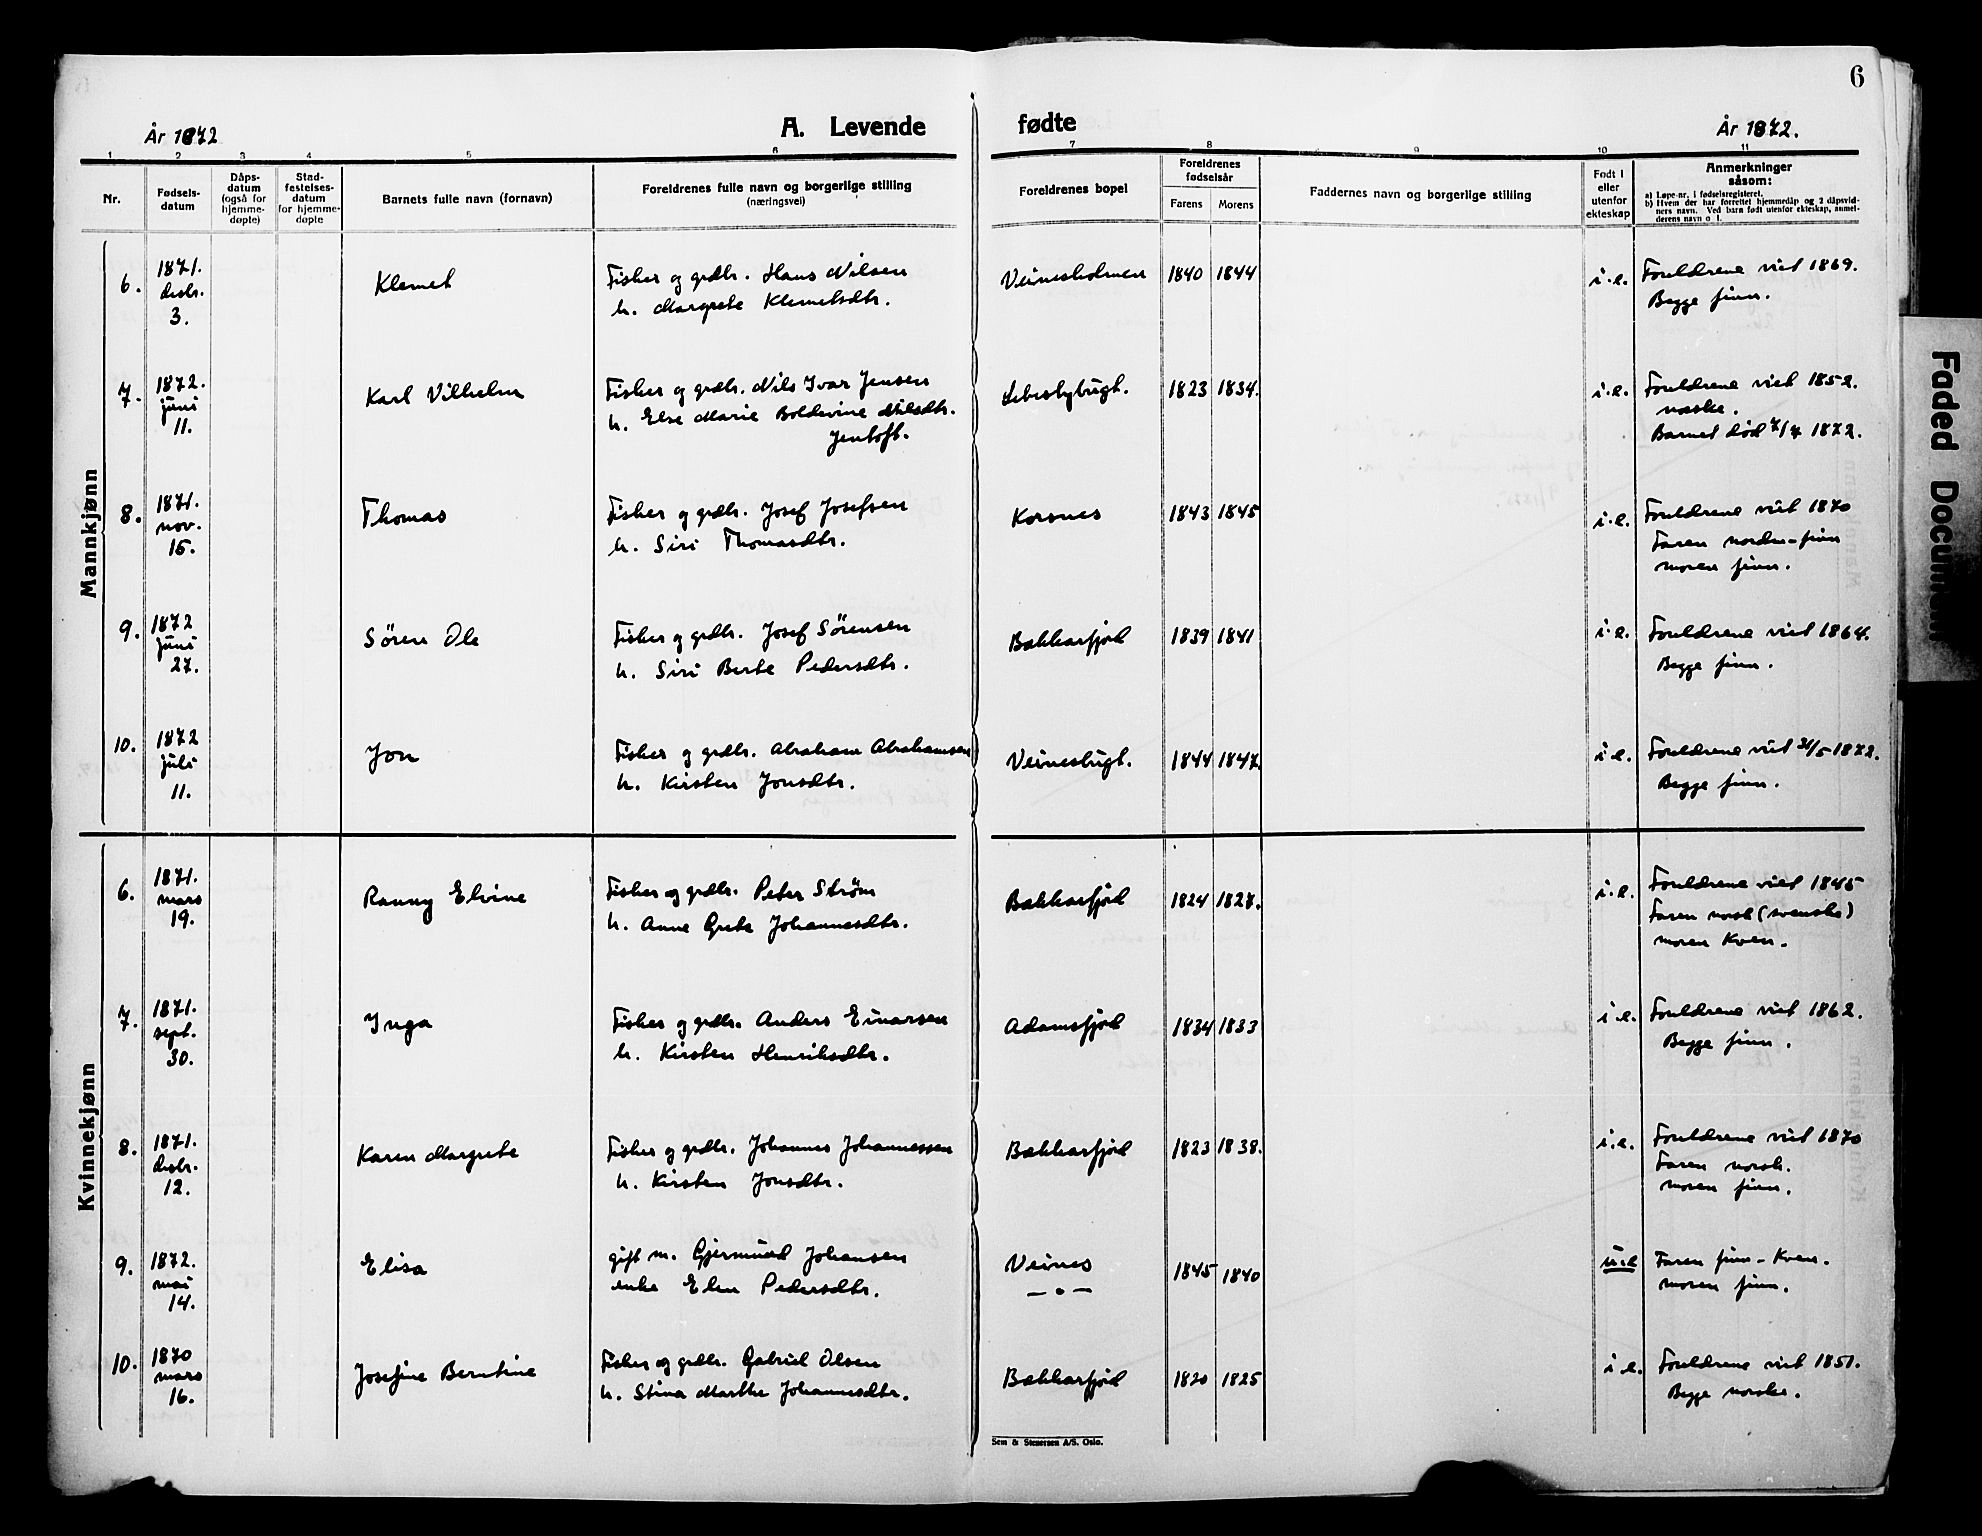 6
År 1872
A. Levende
fødte
År 1872.
1 2 3 4 5 6 7 8 9 10 11
Nr.
Fødsels-
datum
Dåps-
datum
(også for
hjemme-
døpte)
Stad-
festelses-
datum
for hjemme-
døpte
Barnets fulle navn (fornavn)
Foreldrenes fulle navn og borgerlige stilling
(næringsvei)
Foreldrenes bopel
Foreldrenes
fødselsår
Farens
Morens
Faddernes navn og borgerlige stilling
Født i
eller
utenfor
ekteskap
Anmerkninger
såsom:
a) Løpe-nr. i fødselsregisteret.
b) Hvem der har forrettet hjemmedåp og 2 dåpsvid-
ners navn. Ved barn født utenfor ekteskap, anmel-
derens navn o. l.
Mannkjønn
6.
1871.
desbr.
3.
Klemet
Fisker og grdbr. Hans Nilsen
h. Margrete Klemetsdtr.
Veinesholmen
1840
1844
i.e.
Foreldrene viet 1869.
Begge finn.
7.
1872.
juni
11.
Karl Vilhelm
Fisker og grdbr. Nils Ivar Jensen
h. Else Marie Boldevine Nilsdtr.
Jentoft.
Lebesbybugt.
1823
1834.
i.e.
Foreldrene viet 1852.
norske.
Barnet død 7/7 1872.
8.
1871.
nov.
15.
Thomas
Fisker og grdbr. Josef Josefsen
h. Siri Thomasdtr.
Korsnes
1843
1845
i.e.
Foreldrene viet 1870
Faren norsk-finn
moren finn.
9.
1872
juni
27.
Søren Ole
Fisker og grdbr. Josef Sørensen
h. Siri Berte Pedersdtr.
Bekkarfjord
1839
1841
i.e.
Foreldrene viet 1864.
Begge finn.
10.
1872
juli
11.
Jon
Fisker og grdbr. Abraham Abrahamsen
h. Kirsten Jonsdtr.
Veinesbugt.
1844
1847.
i.e.
Foreldrene viet 31/5 1872.
Begge finn.
Kvinnekjønn
6.
1871.
mars
19.
Ranny Elvine
Fisker og grdbr. Peter Strøm
h. Anne Grete Johannesdtr.
Bekkarfjord
1824
1827.
i.e.
Foreldrene viet 1845
Faren norsk (svenske)
moren Kven.
7.
1871.
sept.
30.
Inga
Fisker og grdbr. Anders Einarsen
h. Kirsten Henriksdtr.
Adamsfjord
1834
1833
i.e.
Foreldrene viet 1862.
Begge finn.
8.
1871.
desbr.
12.
Karen Margrete
Fisker og grdbr. Johannes Johannessen
h. Kirsten Jonsdtr.
Bekkarfjord
1823
1838.
i.e.
Foreldrene viet 1870
Faren norsk.
moren finn.
9.
1872.
mai
14.
Elisa
gift m. Gjermund Johansen
enke Elen Pedersdtr.
Veines
— o —
1845
1840
u.e
Faren finn-Kven.
moren finn.
10.
1870
mars
16.
Josefine Berntine
Fisker og grdbr. Gabriel Olsen
h. Stina Marthe Johannesdtr.
Bekkarfjord
1820
1825
i e.
Foreldrene viet 1851.
Begge norske.
Sem & Stenersen A/S. Oslo.
Faded Document